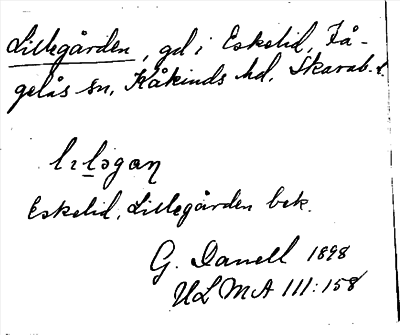 Lillegården, gd i Eskelid, Få-
gelås sn, Kåkinds hd, Skarab. l.
Eskelid, Lillegården bek.
G. Danell 1898
ULMA 111:158